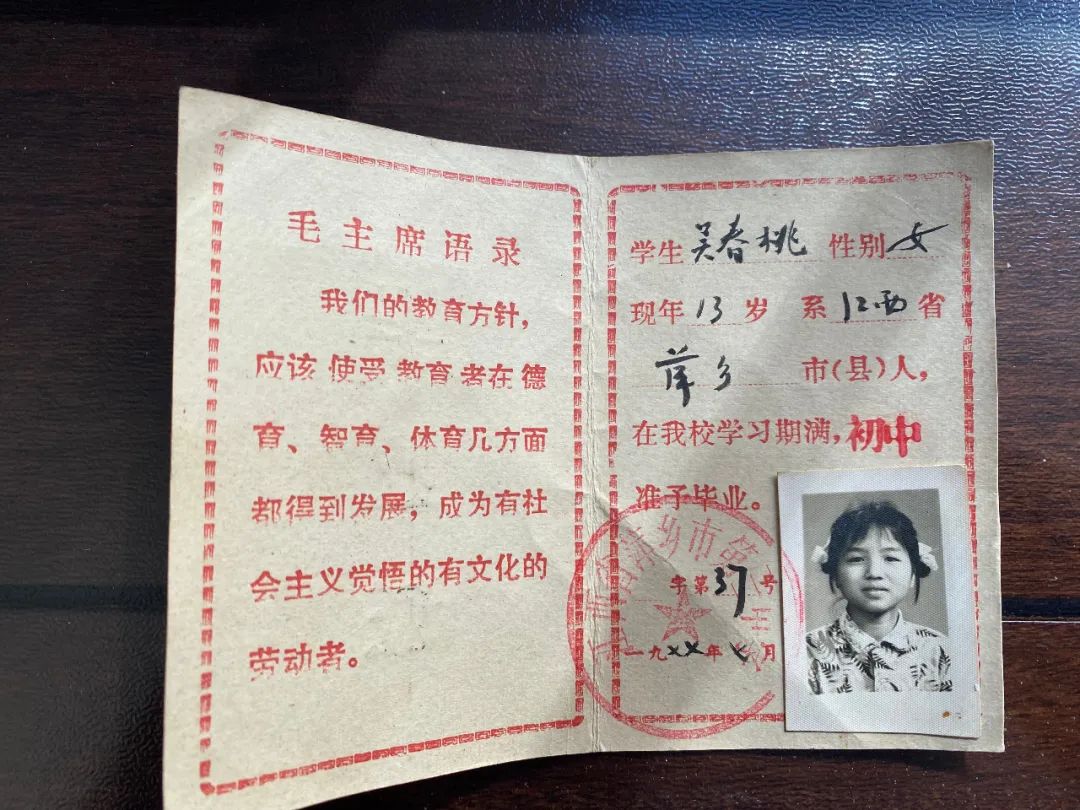 毛主席语录
我们的教育方针，
应该使受教育者在德
育、智育、体育几方面
都得到发展，成为有社
会主义觉悟的有文化的
劳动者。
学生吴春桃 性别女
现年13岁 系江西省
萍乡市(县)人，
在我校学习期满，初中
准予毕业。
乡市第
字第37号
一九七七年七月